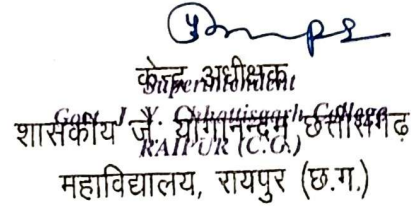 केन्द्र अधीक्षक
Superintendent
Govt. J. Y. Chhattisgarh College
शासकीय जे. योगानन्दम् छत्तीसगढ़
RAIPUR (C.G.)
महाविद्यालय, रायपुर (छ.ग.)